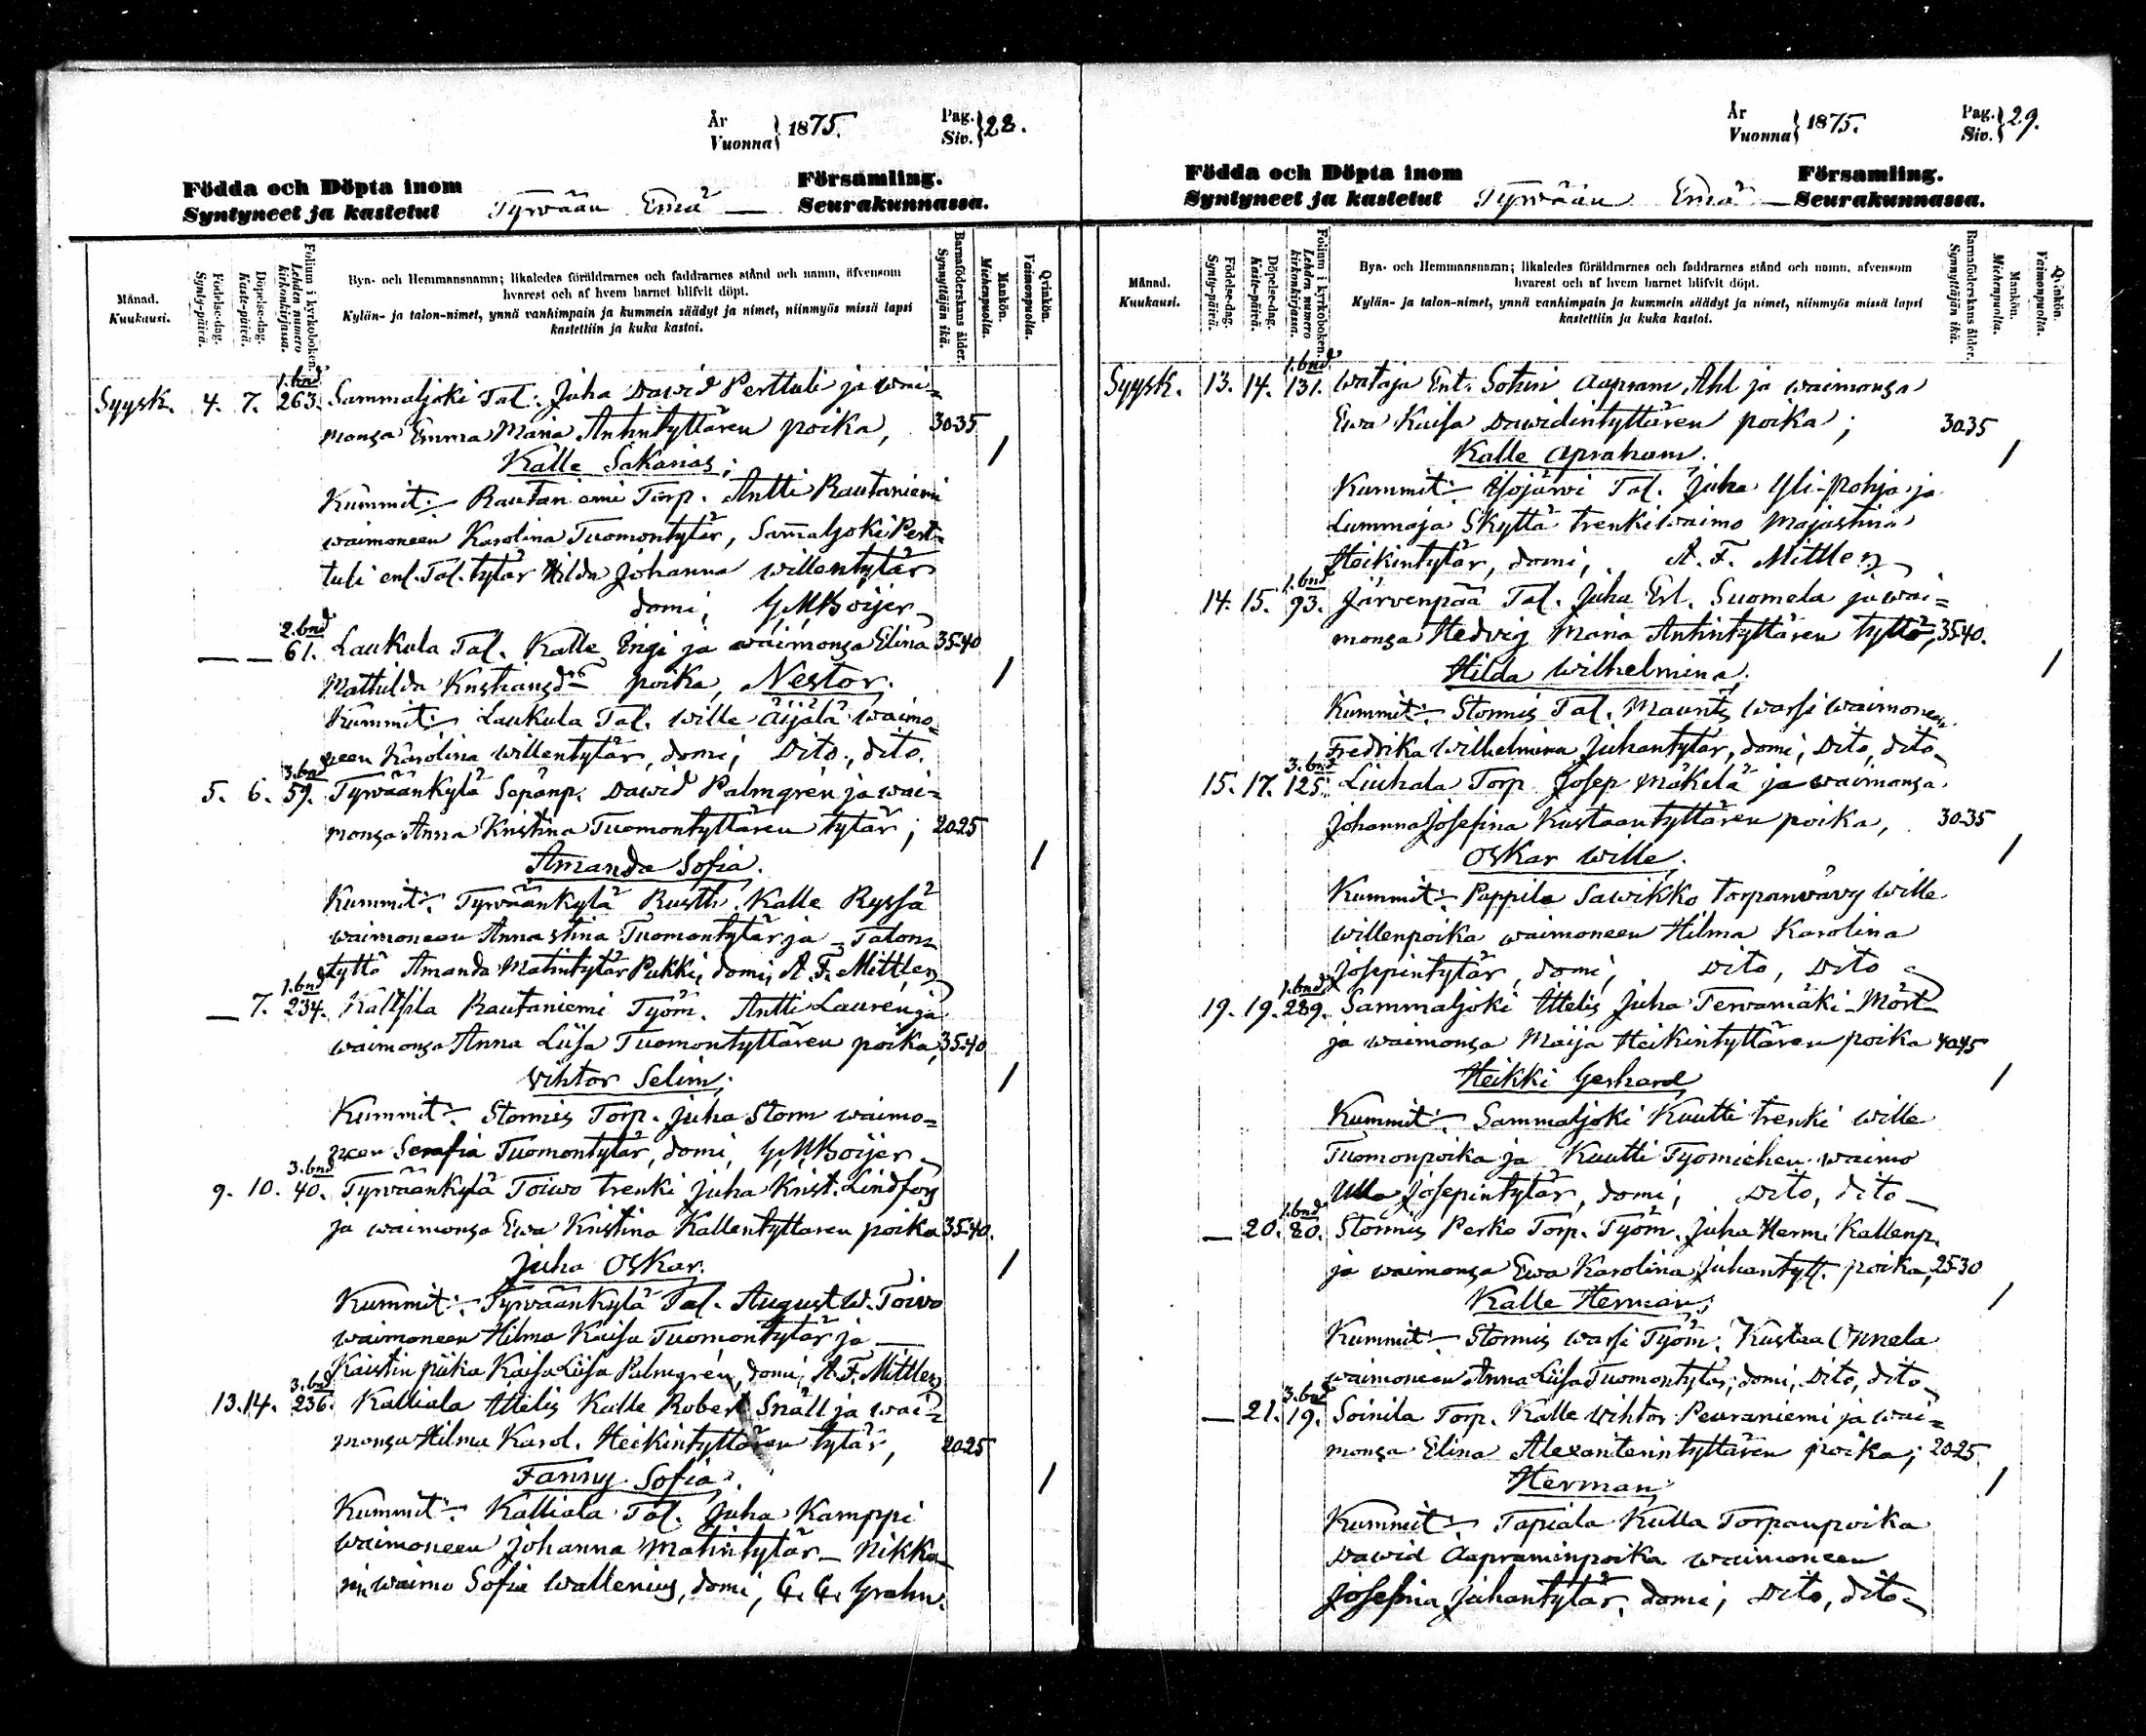 År
Vuonna} 1875.
Pag.
Siv.} 28.
Födda och Döpta inom
Syntyneet ja kastetut
Tyrvään Emä —
Församling.
Seurakunnassa.
Månad.
Kuukausi.
Födelse-dag.
Synty-päivä.
Döpelse-dag.
Kaste-päivä.
Folium i kyrkoboken.
Lehden numero
kirkonkirjassa.
Byn- och Hemmansnamn; likaledes föräldrarnes och faddrarnes stånd och namn, äfvensom
hvarest och af hvem barnet blifvit döpt.
Kylän- ja talon-nimet, ynnä vanhimpain ja kummein säädyt ja nimet, niinmyös missä lapsi
kastettiin ja kuka kastoi.
Barnaföderskans ålder.
Synnyttäjän ikä.
Mankön.
Miehenpuolta.
Qvinkön.
Vaimonpuolta.
1.bnd
Syysk. 4. 7. 263. Sammaljoki Tal. Juha Dawid Perttuli ja wai=
monsa Emma Maria Antintyttären poika, 30-35
Kalle Sakarias; /
Kummit:- Rautaniemi Torp. Antti Rautaniemi
waimoneen Karolina Tuomontytär, Sammaljoki Pert=
tuli enl. Tal. tytär Hilda Johanna Willentytär
domi, G M Boijer
2.bnd
— — 61. Laukula Tal. Kalle Erigi ja waimonsa Elina 35-40
Mathilda Kristiansd:r poika, Nestor. /
Kummit:- Laukula Tal. Wille Äijälä waimo=
neen Karolina Willentytär, domi; Dito, dito.
3.bnd
5. 6. 59. Tyrväänkylä Sepänp. Dawid Palmgrén ja wai=
monsa Anna Kristina Tuomontyttären tytär; 20-25
Amanda Sofia. /
Kummit:- Tyrväänkylä Rusth. Kalle Ryssä
waimoneen Annastina Tuomontytär ja Talon=
tyttö Amanda Matintytär Pukki, domi, A. F. Mittler
1.bnd
— 7. 234. Kaltsila Rautaniemi Työm. Antti Lauren ja
waimonsa Anna Liisa Tuomontyttären poika, 35-40
Wihtor Selim; /
Kummit:- Stormis Torp. Juha Storm waimo=
neen Serafia Tuomontytär, domi, G M Boijer
3.bnd
9. 10. 40. Tyrväänkylä Toiwo trenki Juha Krist. Lindfors
ja waimonsa Ewa Kristina Kallentyttären poika 35-40.
Juha Oskar. /
Kummit:- Tyrväänkylä Tal. August W. Toiwo
waimoneen Hilma Kaisa Tuomontytär ja
Kaistin piika Kaisa Liisa Palmgrén, domi, A. F. Mittler
3.bnd
13. 14. 236. Kalliala Ittelis Kalle Robert Snäll ja wai=
monsa Hilma Karol. Heikintyttären tytär, 20-25
Fanny Sofia. /
Kummit:- Kalliala Tal. Juha Kamppi
waimoneen Johanna Matintytär — Nikka=
rin waimo Sofia Wallenius, domi, G. G. Grahn.
År
Vuonna} 1875.
Pag.
Siv.} 29.
Födda och Döpta inom
Syntyneet ja kastetut
Tyrvään Emä —
Församling.
Seurakunnassa.
Månad.
Kuukausi.
Födelse-dag.
Synty-päivä.
Döpelse-dag.
Kaste-päivä.
Folium i kyrkoboken.
Lehden numero
kirkonkirjassa.
Bya- och Hemmansnamn; likaledes föräldrarnes och faddrarnes stånd och namn, äfvensom
hvarest och af hvem barnet blifvit döpt.
Kylän- ja talon-nimet, ynnä vanhimpain ja kummein säädyt ja nimet, niinmyös missä lapsi
kastettiin ja kuka kastoi.
Barnaföderskans ålder.
Synnyttäjän ikä.
Mankön.
Miehenpuolta.
Qvinkön.
Vaimonpuolta.
1.bnd
Syysk. 13. 14. 131. Wataja Ent. Sotm. Aapram Ahl ja waimonsa
Ewa Kaisa Dawidintyttären poika; 30-35
Kalle Apraham. /
Kummit:- Isojärvi Tal. Juha Yli-Pohja ja
Lummaja Skyttä trenki waimo Majastina
Heikintytär, domi, A. F. Mittler
1.bnd
14. 15. 93. Järvenpää Tal. Juha Erl. Suomela ja wai=
monsa Hedvig Maria Antintyttären tyttö, 35-40.
Hilda Wilhelmina. /
Kummit:- Stormis Tal. Maurits Warsi waimoneen
Fredrika Wilhelmina Juhantytär, domi, Dito, dito
3.bnd
15. 17. 125. Liuhala Torp. Josep Mäkelä ja waimonsa
Johanna Josefina Kustaantyttären poika, 30-35
Oskar Wille. /
Kummit:- Pappila Sawikko Torpanvävy Wille
Willenpoika waimoneen Hilma Karolina
Josepintytär, domi, Dito, Dito
1.bnd
19. 19. 289. Sammaljoki Ittelis Juha Tervamäki-Mört
ja waimonsa Maija Heikintyttären poika 40-45
Heikki Gerhard, /
Kummit:- Sammaljoki Kuutti trenki Wille
Tuomonpoika ja Kuutti Työmiehen waimo
Ulla Josepintytär, domi, Dito, dito
1.bnd
— 20. 80. Stormis Perko Torp. Työm. Juha Herm. Kallenp.
ja waimonsa Ewa Karolina Juhantytt. poika, 25-30
Kalle Herman; /
Kummit:- Stormis Warsi Työm. Kustaa Onnela
waimoneen Anna Liisa Tuomontytär, domi, Dito, dito
3.bnd
— 21. 19. Soinila Torp. Kalle Wihtor Peuraniemi ja wai=
monsa Elina Alexanterintyttären poika; 20-25
Herman, /
Kummit:- Tapiala Kulla Torpanpoika
Dawid Aapraminpoika waimoneen
Josefina Juhantytär, domi; Dito, dito